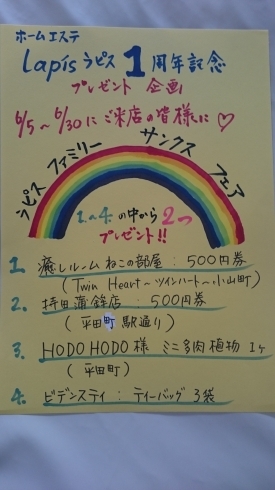 ホームエステ
Lapis ラピス 1周年記念
プレゼント 企画
6/5～6/30にご来店の皆様に♡
ラピス ファミリー サンクス フェア
1.~4.の中から2つ
プレゼント!!
1. 癒しルームねこの部屋:500円券
(Twin Heart～ツインハート～小山町)
2. 持田蒲鉾店:500円券
(平田町駅通り)
3. HODO HODO様 ミニ多肉植物 1ヶ
(平田町)
4. ビデンスティ:ティーバッグ 3袋